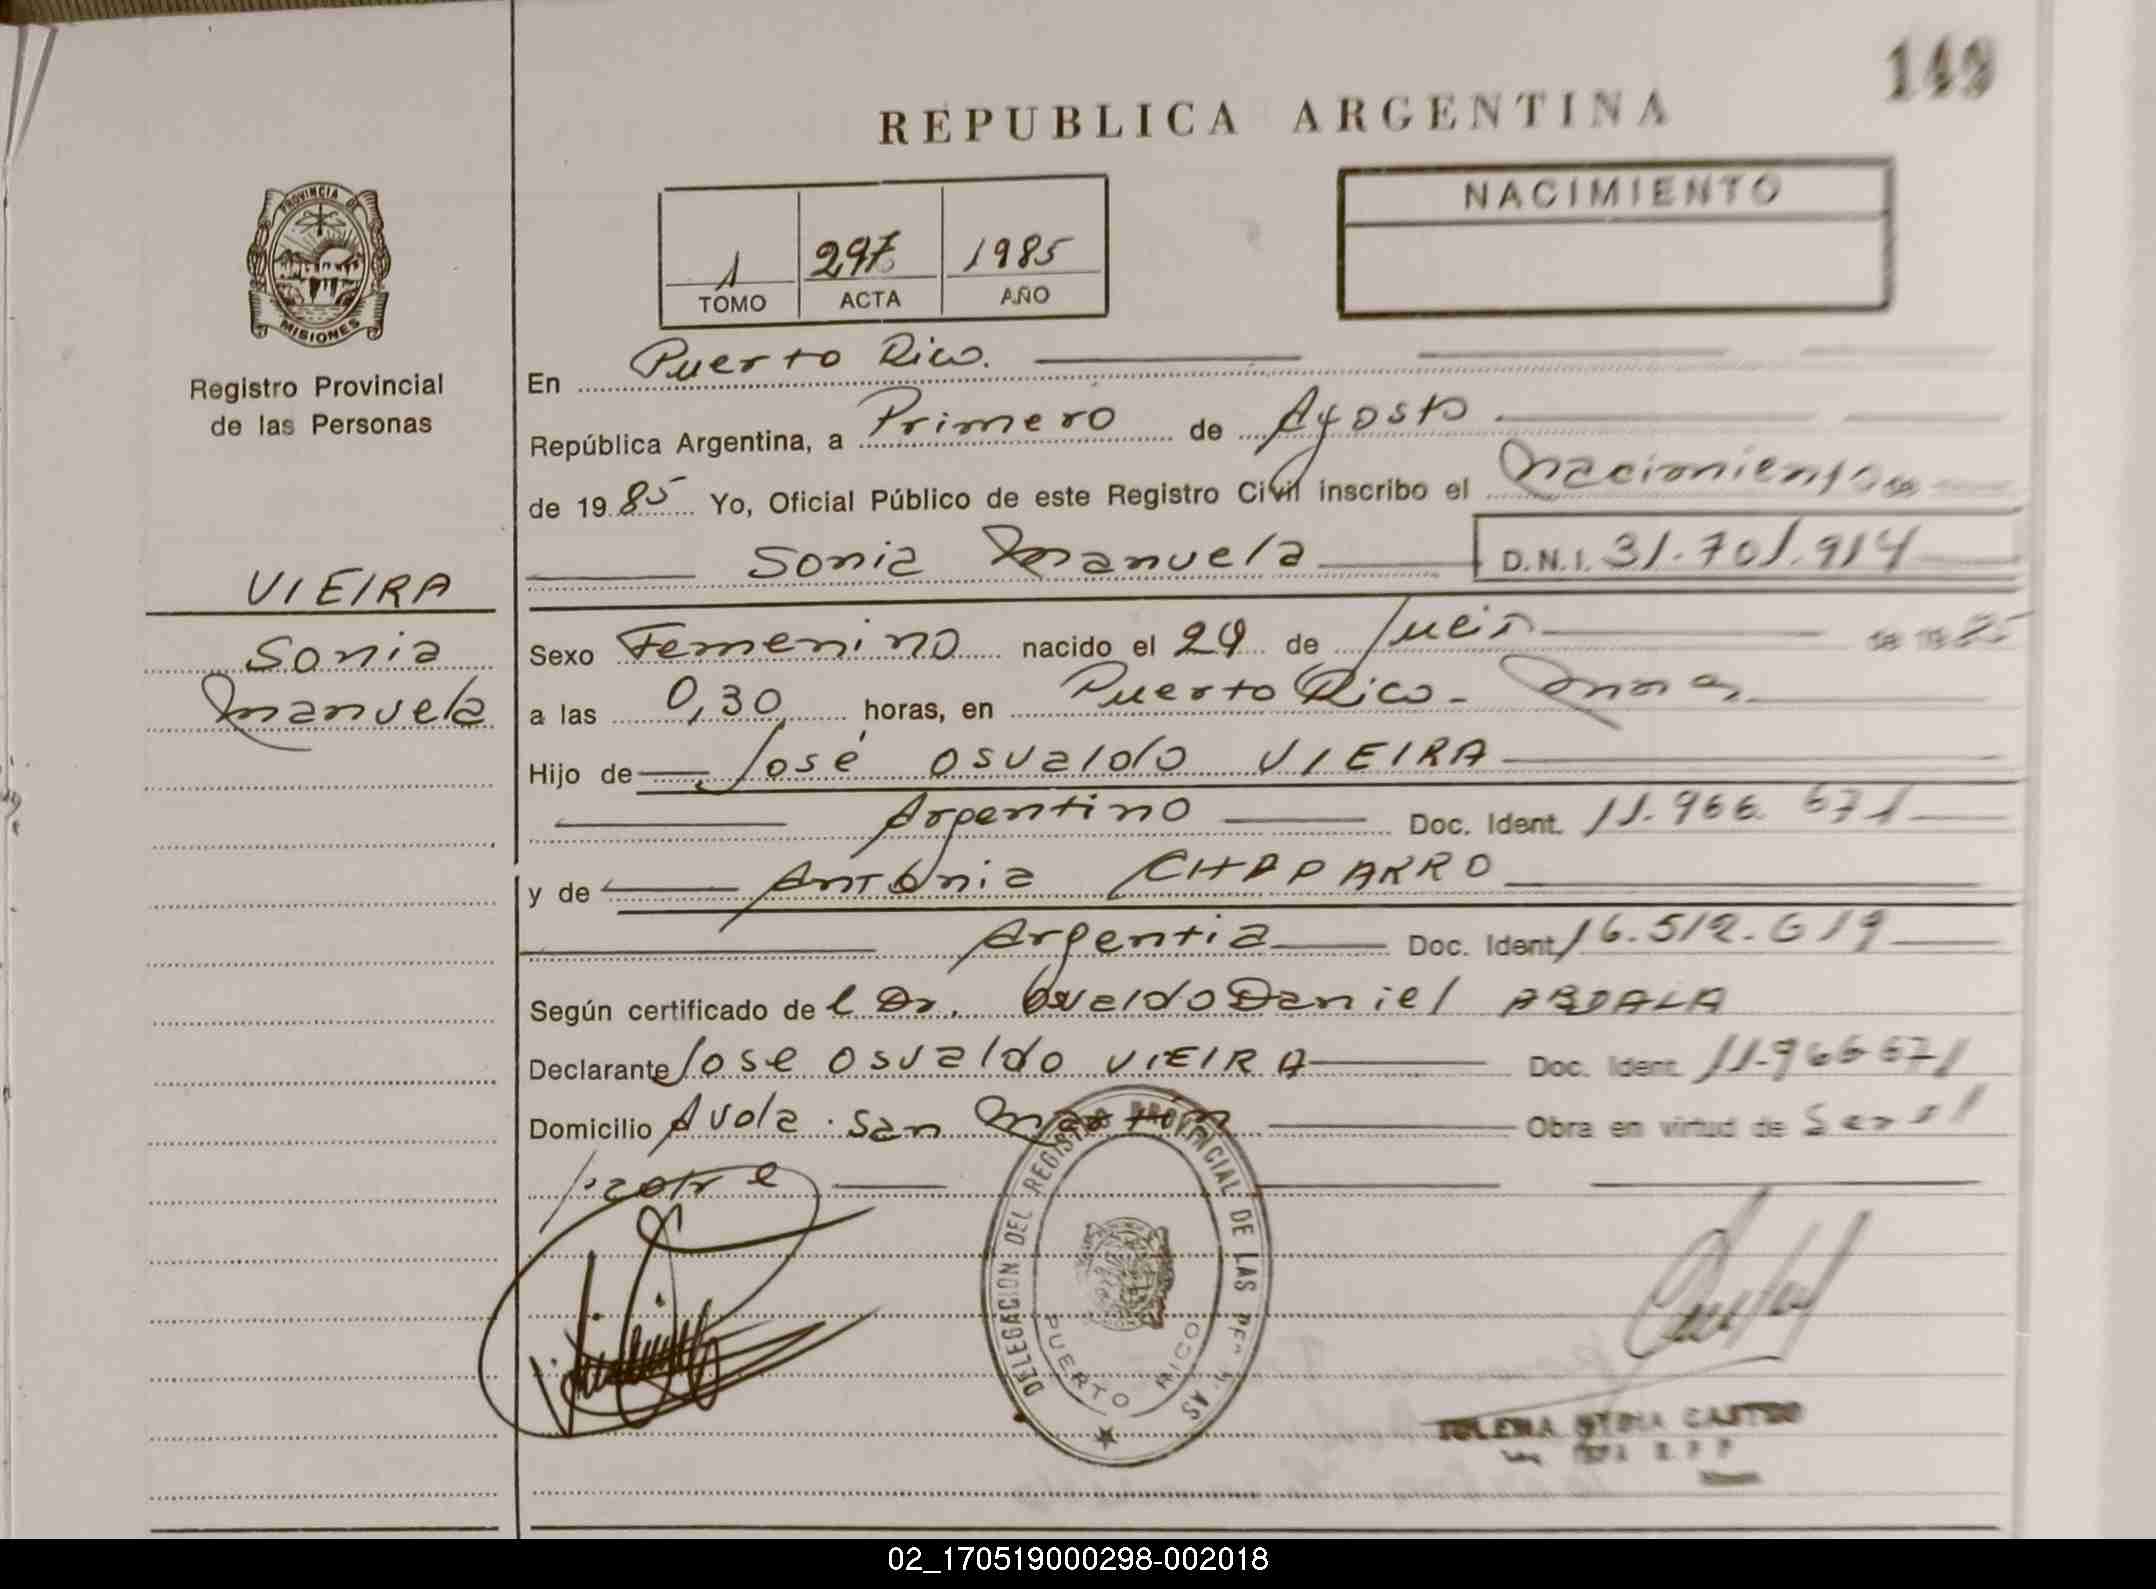 149
REPUBLICA ARGENTINA
PROVINCIA DE
MISIONES
Registro Provincial
de las Personas
1 297 1985
TOMO ACTA AÑO
NACIMIENTO
En Puerto Rico.
República Argentina, a Primero de Agosto
de 1985 Yo, Oficial Público de este Registro Civil inscribo el Nacimiento de
Sonia Manuela D.N.I. 31.701.914
VIEIRA
Sonia
Manuela
Sexo Femenino nacido el 29 de Julio de 1985
a las 0,30 horas, en Puerto Rico-
Hijo de José Osvaldo VIEIRA
Argentino Doc. Ident. 11.966.671
y de Antonia CHAPARRO
Argentia Doc. Ident. 16.512.619
Según certificado de l Dr. Osvaldo Daniel ABDALA
Declarante Jose Osvaldo VIEIRA Doc. Ident. 11.966671
Domicilio Avda. San Martin Obra en virtud de Ser el
padre
DELEGACION DEL REGISTRO PROVINCIAL DE LAS PERSONAS
PUERTO RICO
CASTRO
02_170519000298-002018